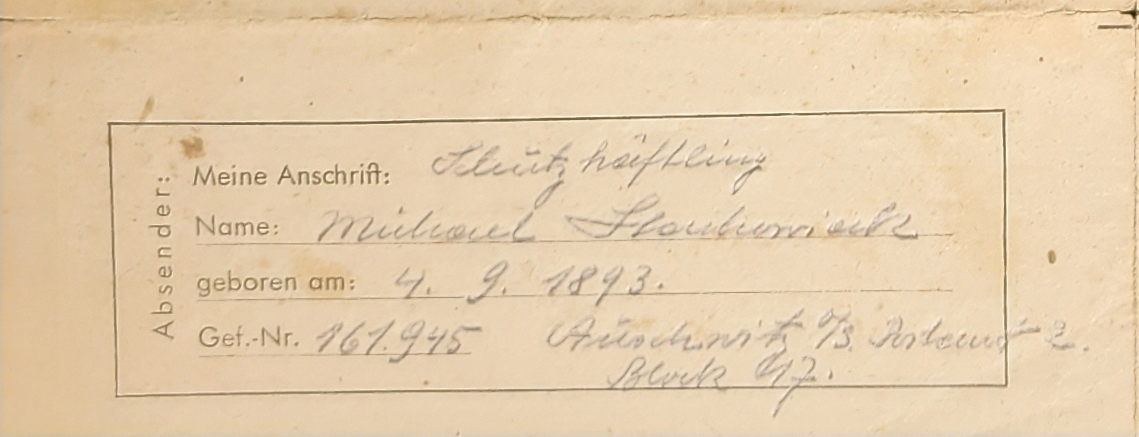 Absender:
Meine Anschrift: Schutzhäftling
Name: Michael Stachowiack
geboren am: 4. 9. 1893.
Gef.-Nr. 161.945 Auschwitz O/S. Postamt 2.
Block 17.